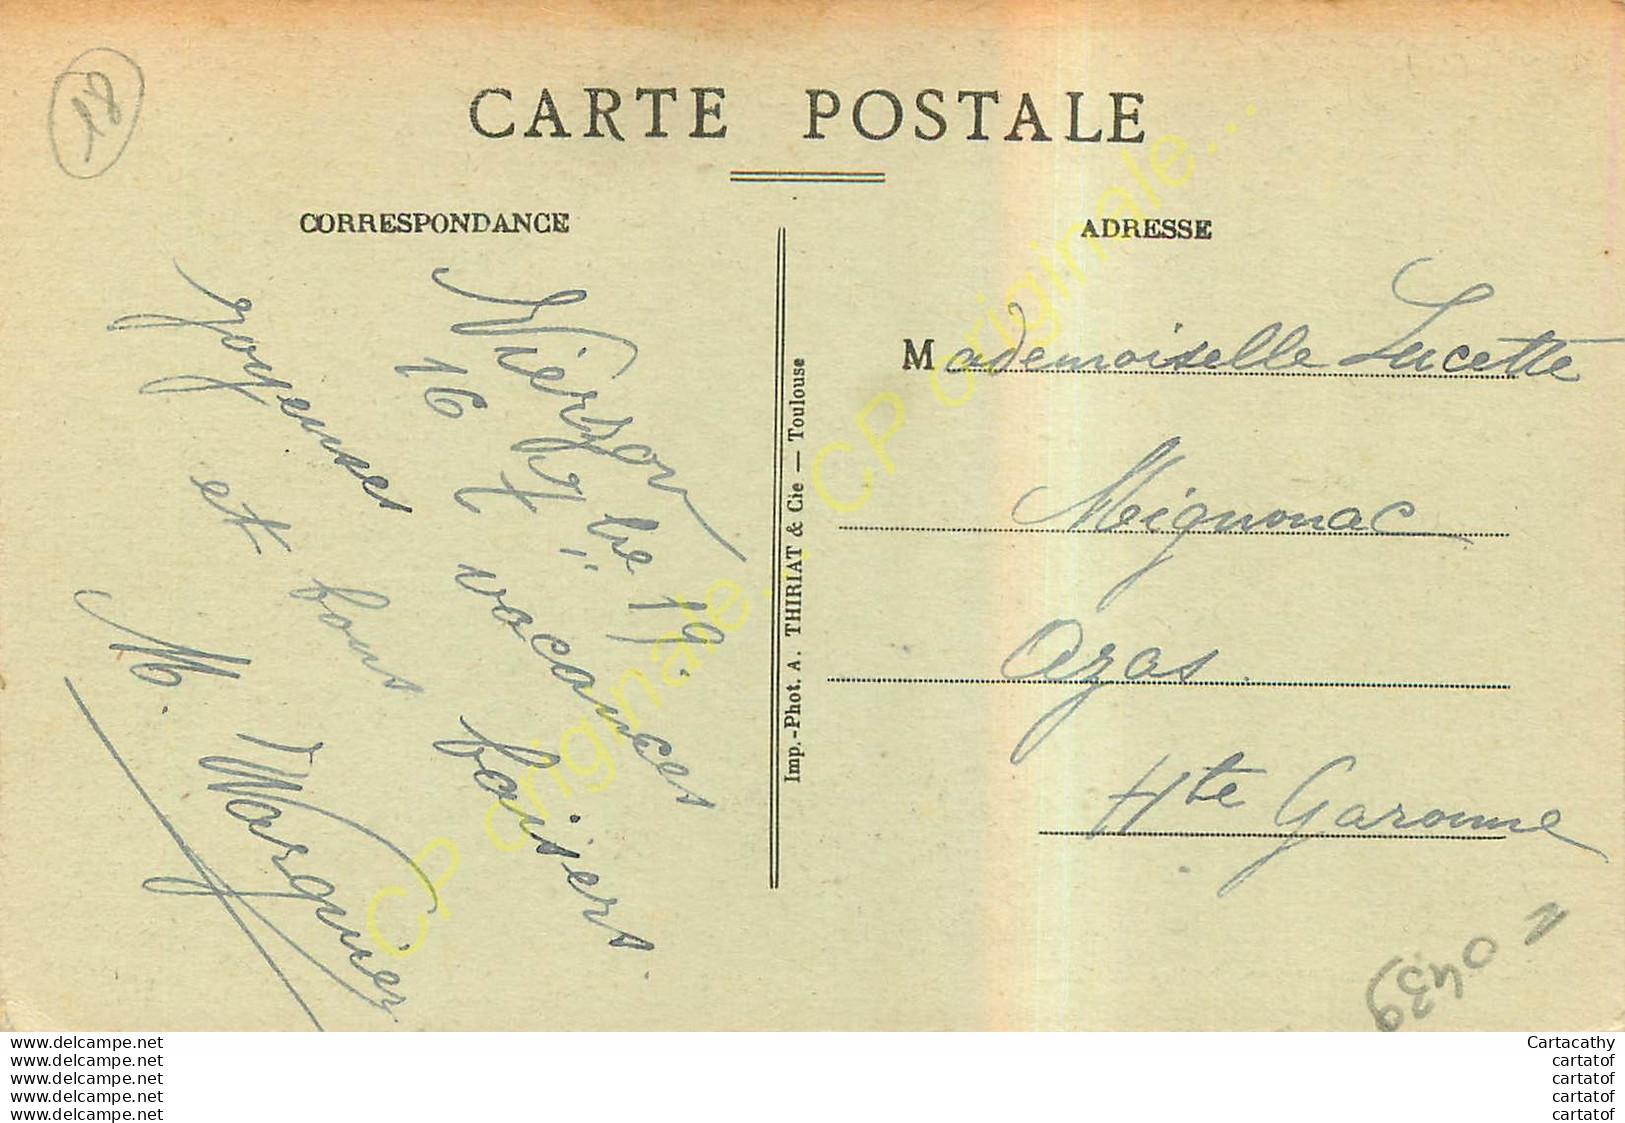 18
CARTE POSTALE
CORRESPONDANCE
ADRESSE
Vierzon
16 7bre 19.
Joyeuses vacances
et bons baisers.
M. Marquier
Imp.-Phot. A. THIRIAT & Cie — Toulouse
Mademoiselle Lucette
Mignonac
Azas.
Hte Garonne
CP originale...
CP originale...
www.delcampe.net
www.delcampe.net
www.delcampe.net
www.delcampe.net
www.delcampe.net
Cartacathy
cartatof
cartatof
cartatof
cartatof